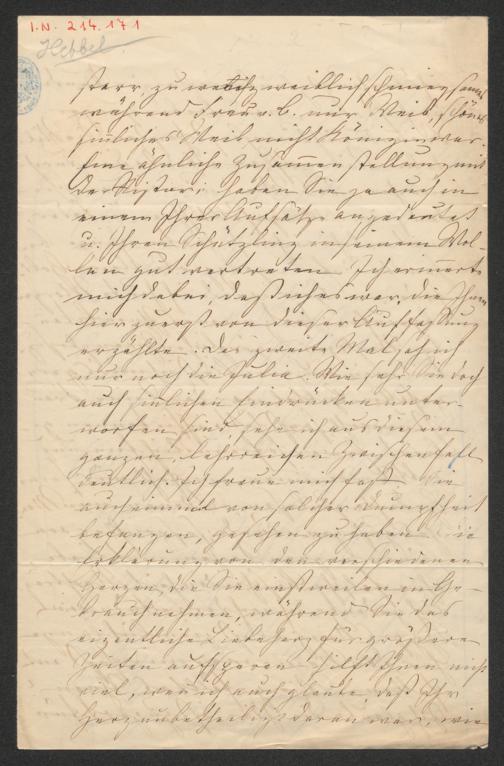 I.N. 214.171
Hebbel
starr, zu weiblich schmiegsam
während Frau v. B. nur Weib, schönes
sinnliches Weib nicht Königin war.
Eine ähnliche Zusammenstellung mit
der Ristori haben Sie ja auch in
einem Ihrer Aufsätze angedeutet
u. Ihren Schützling in seinem Wol-
len gut vertreten. Ich erinnerte
mich dabei, daß ich es war, die Ihnen
hier zuerst von dieser Auffassung
erzählte. Das zweite Mal sah ich
nur noch die Julia. Wie sehr Sie doch
auch sinnlichen Eindrücken unter-
worfen sind sehe ich aus diesem
ganzen, lehrreichen Zwischenfall
deutlich. Ich freue mich fast Sie
auch einmal von solcher Dumpfheit
befangen, gesehen zu haben. Die
Erklärung von den verschiedenen
Herzen, die Sie einstweilen in Ge-
brauch nehmen, während Sie das
eigentliche Liebeherz für größere
Zeiten aufsparen hilft Ihnen nicht
viel, wenn ich auch glaube, daß Ihr
Herz unbetheiligt daran war, wie